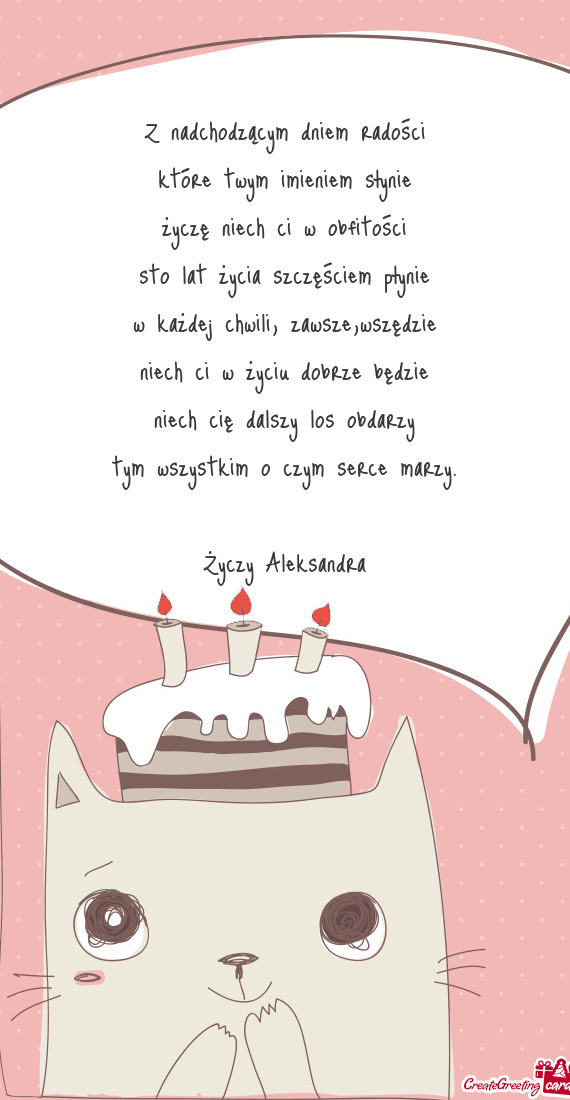 Z nadchodzącym dniem radości
które twym imieniem słynie
życzę niech ci w obfitości
sto lat życia szczęściem płynie
w każdej chwili, zawsze,wszędzie
niech ci w życiu dobrze będzie
niech cię dalszy los obdarzy
tym wszystkim o czym serce marzy.
Życzy Aleksandra
CreateGreeting